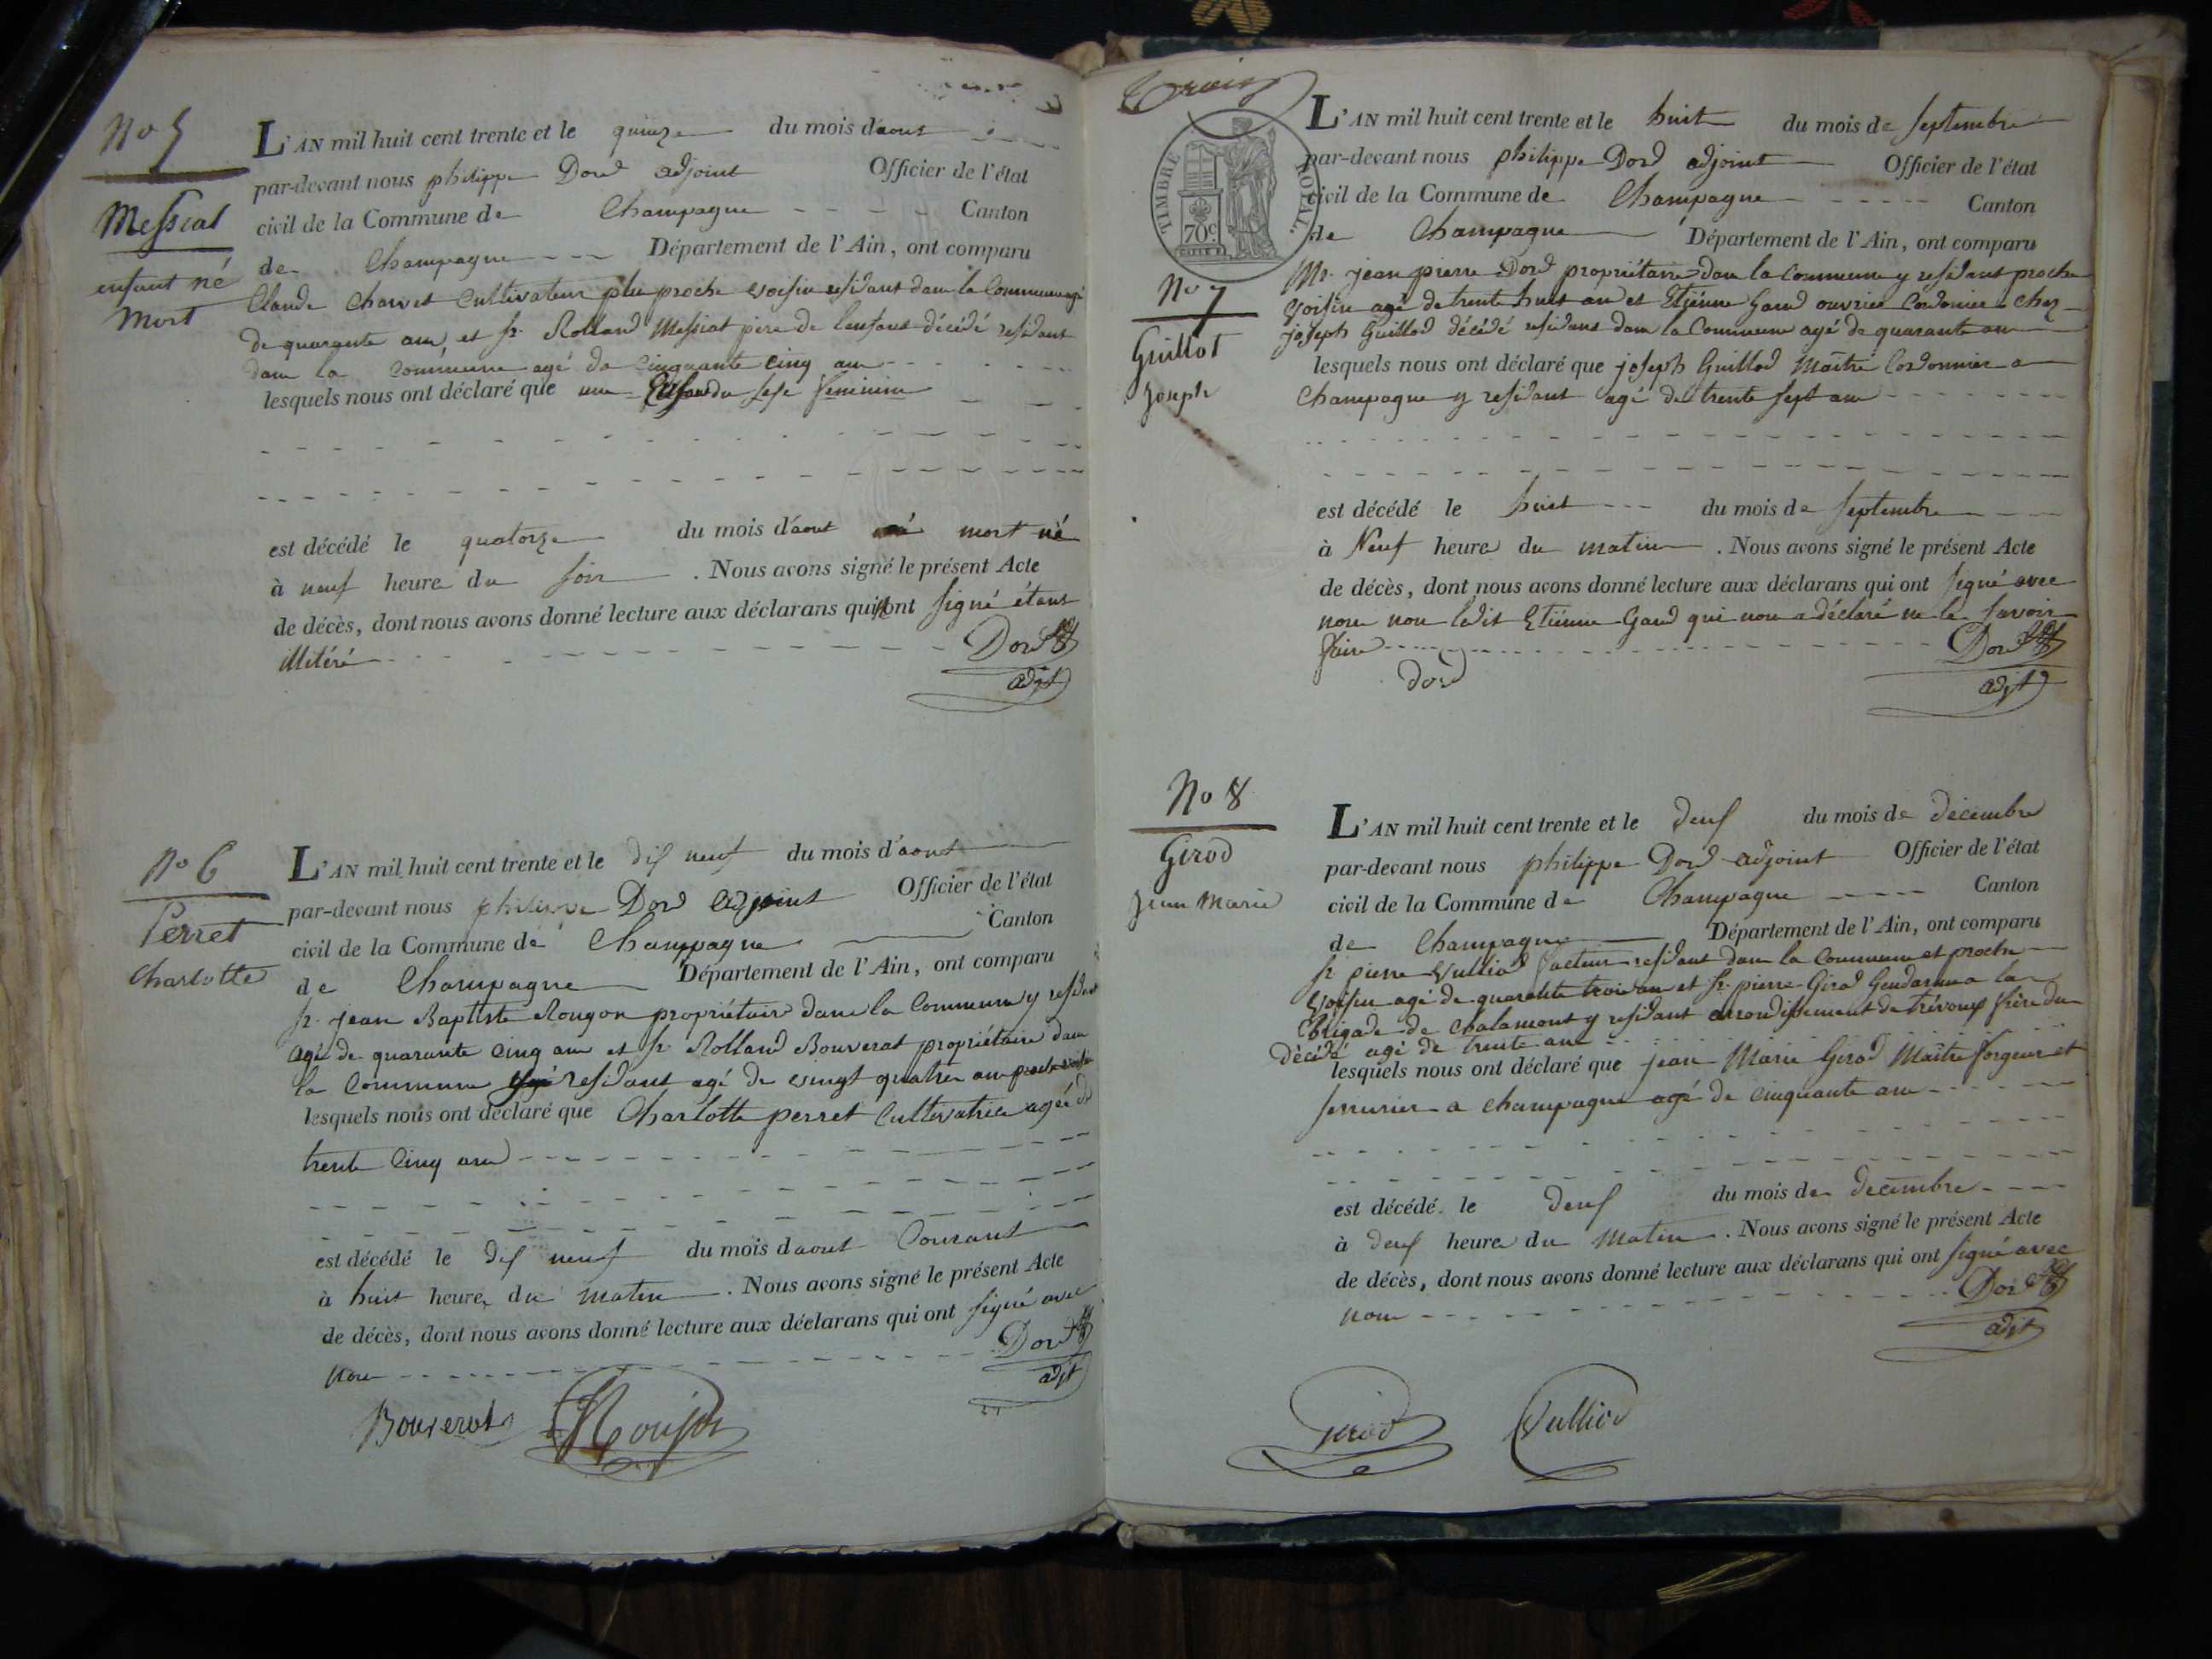 No 5
Messiat
enfant né
Mort
L'AN mil huit cent trente et le quinze du mois d'aout
par-devant nous philippe Dord adjoint Officier de l'état
civil de la Commune de Champagne Canton
de Champagne Département de l'Ain, ont comparu
Claude Charvet Cultivateur plus proche voisin residant dans la Commune agé
de quarante ans et sr. Rolland Messiat père de lenfant décédé residant
dans la commune agé de cinquante cinq ans
lesquels nous ont déclaré que une Enfant du sexe feminin
est décédé le quatorze du mois d'aout mort né
à neuf heure du soir. Nous avons signé le présent Acte
de décès, dont nous avons donné lecture aux déclarans qui ont signé étant
illitéré
Dord
adjt
No 6
Perret
Charlotte
L'AN mil huit cent trente et le dix neuf du mois d'aout
par-devant nous philippe Dord adjoint Officier de l'état
civil de la Commune de Champagne Canton
de Champagne Département de l'Ain, ont comparu
sr. jean Baptiste Roujon propriétaire dans la Commune y residant
agé de quarante cinq ans et sr. Rolland Bouverat propriétaire dans
la Commune residant agé de vingt quatre ans proche voisin
lesquels nous ont déclaré que Charlotte perret Cultivatrice agée de
trente cinq ans
est décédé le dix neuf du mois d'aout Courant
à huit heure du matin. Nous avons signé le présent Acte
de décès, dont nous avons donné lecture aux déclarans qui ont signé avec
nous
Dord
adjt
Bouverat Roujon
Trois
TIMBRE ROYAL.
70c
No 7
Guillot
Joseph
L'AN mil huit cent trente et le huit du mois de septembre
par-devant nous philippe Dord adjoint Officier de l'état
civil de la Commune de Champagne Canton
de Champagne Département de l'Ain, ont comparu
Mr. jean pierre Dord propriétaire dans la Commune y residant proche
voisin agé de trente huit ans et Etiénne Gand ouvrier Cordonier chez
joseph Guillod décédé residant dans la Commune agé de quarante ans
lesquels nous ont déclaré que joseph Guillod Maitre Cordonnier a
Champagne y residant agé de trente sept ans
est décédé le huit du mois de septembre
à Neuf heure du matin. Nous avons signé le présent Acte
de décès, dont nous avons donné lecture aux déclarans qui ont signé avec
nous non ledit Etiénne Gand qui nous a déclaré ne le savoir
faire
Dord
adjt
dord
No 8
Girod
Jean Marie
L'AN mil huit cent trente et le deux du mois de décembre
par-devant nous philippe Dord adjoint Officier de l'état
civil de la Commune de Champagne Canton
de Champagne Département de l'Ain, ont comparu
sr. pierre Vulliod facteur residant dans la Commune et proche
voisin agé de quarante trois ans et sr. pierre Girod Gendarme a la
Brigade de Chalamont y residant arrondissement de trévoux frère du
décédé agé de trente ans
lesquels nous ont déclaré que jean Marie Girod Maitre forgeur et
serrurier a champagne agé de cinquante ans
est décédé le deux du mois de decembre
à deux heure du matin. Nous avons signé le présent Acte
de décès, dont nous avons donné lecture aux déclarans qui ont signé avec
nous
Dord
adjt
Girod Vulliod